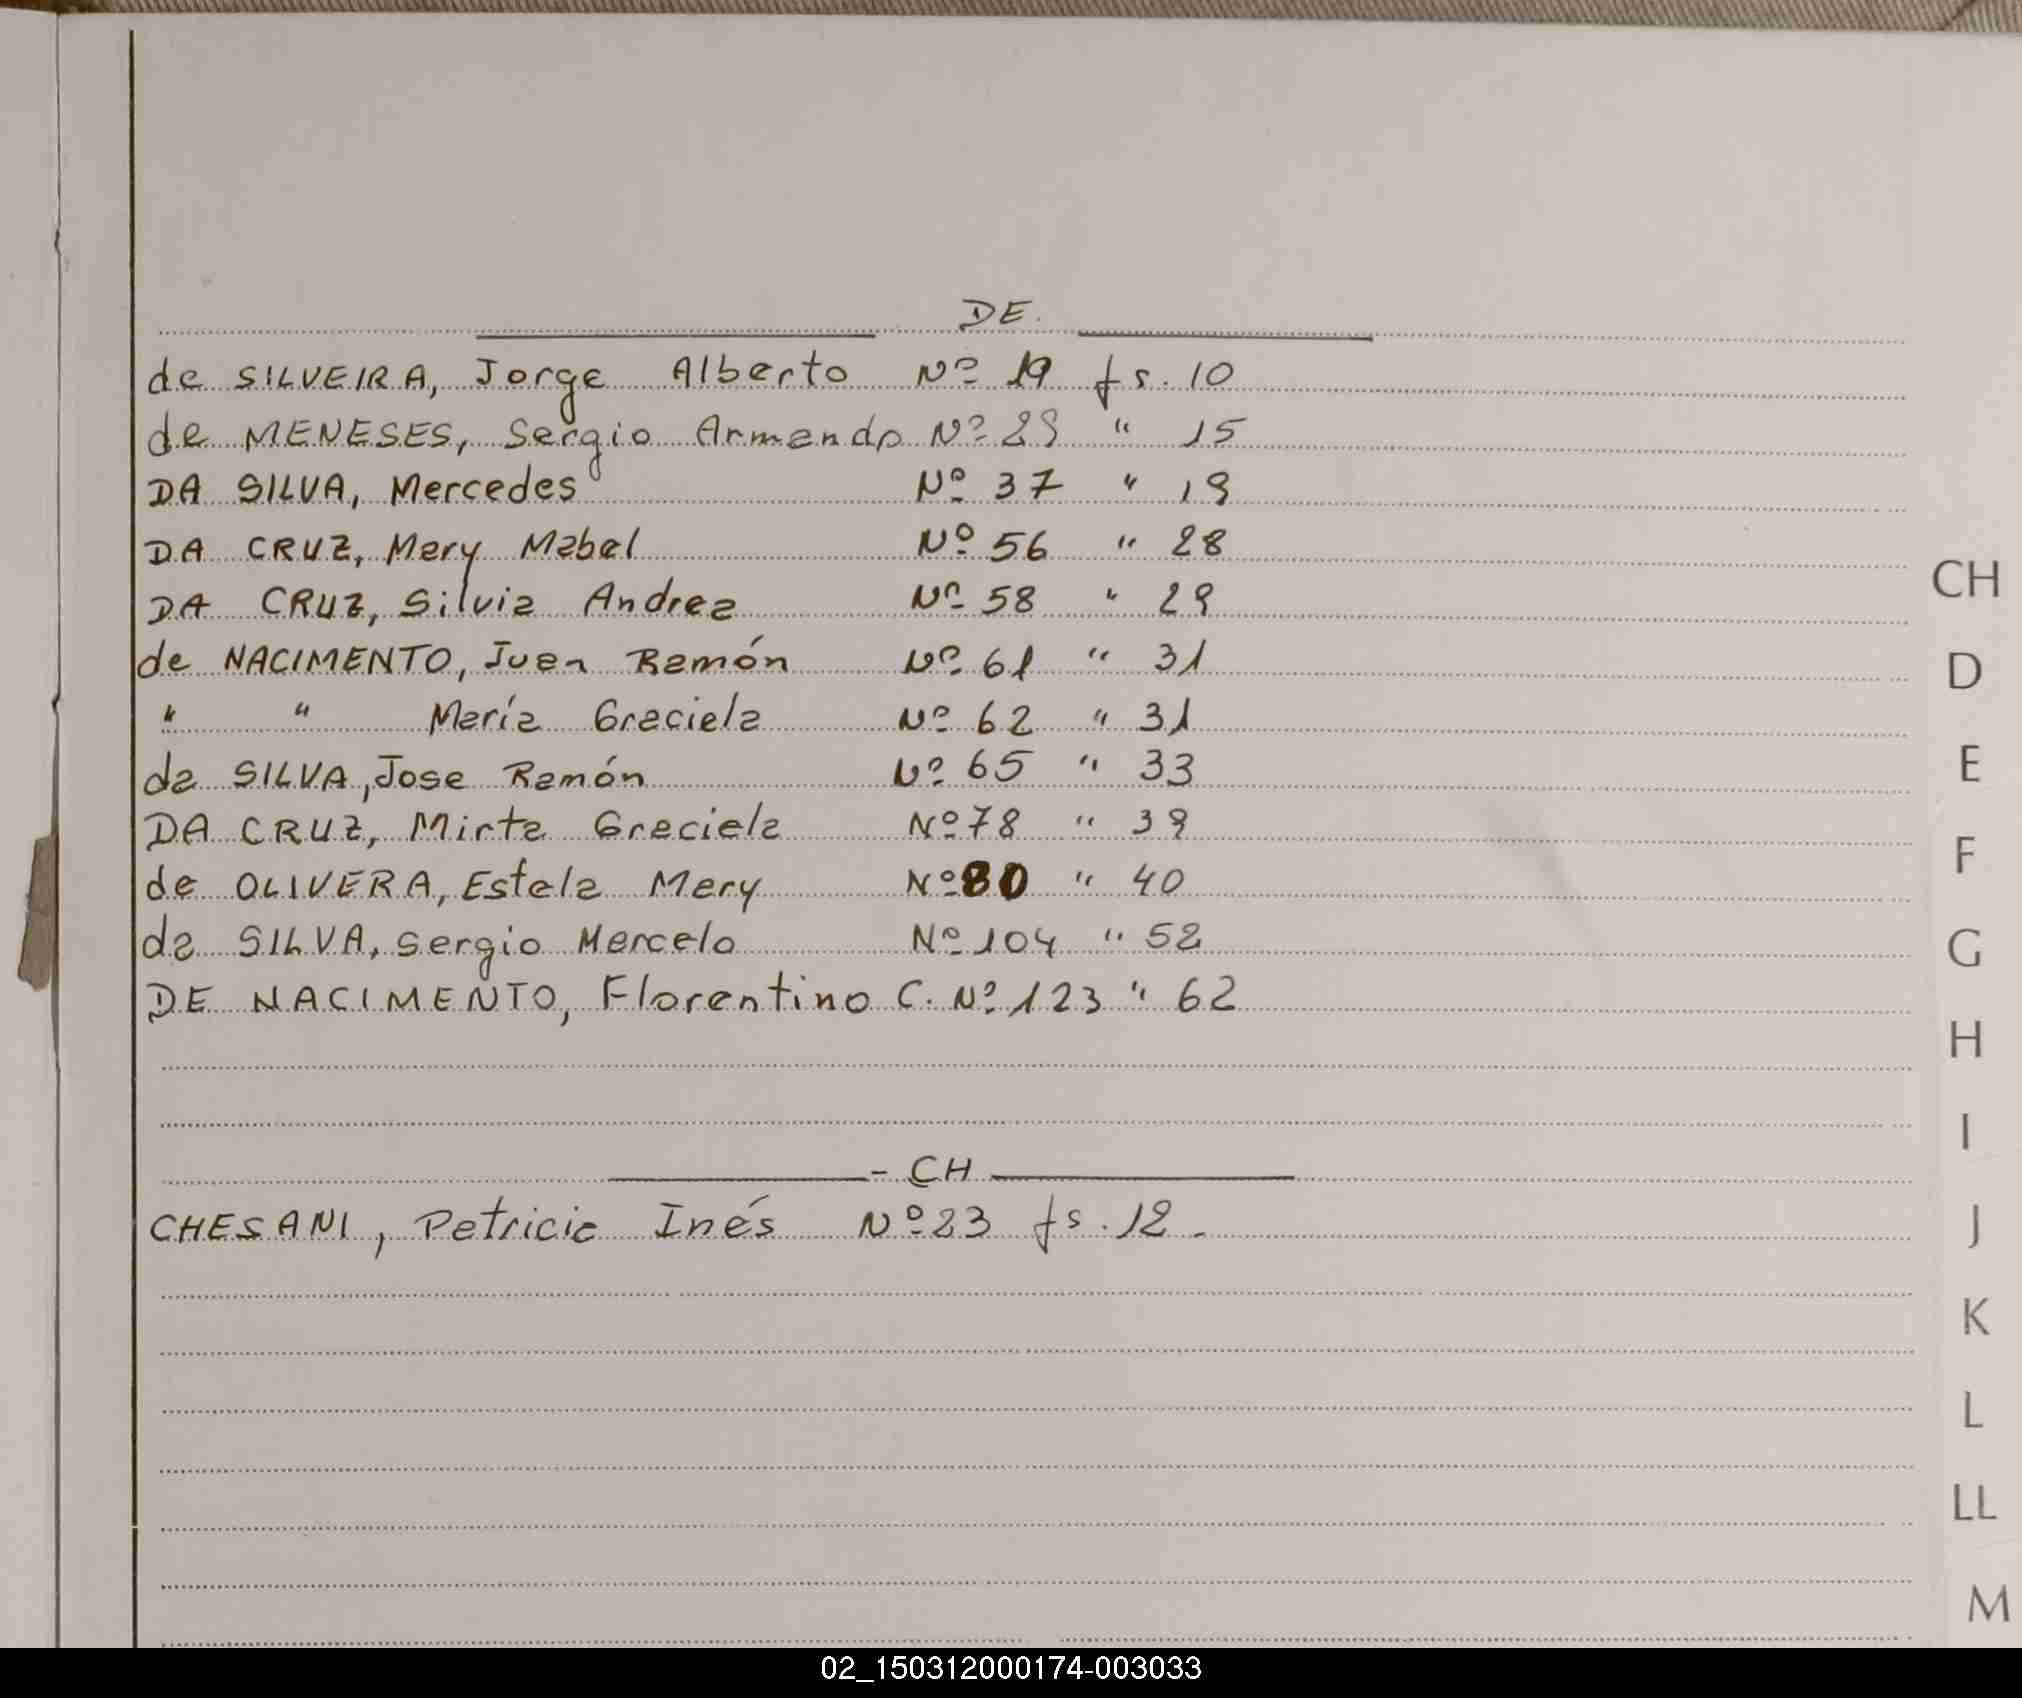 DE.
de SILVEIRA, Jorge Alberto Nº 19 fs. 10
de MENESES, Sergio Armando Nº 29 " 15
DA SILVA, Mercedes Nº 37 " 19
DA CRUZ, Mary Mabel Nº 56 " 28
DA CRUZ, Silvia Andrea Nº 58 " 29
de NACIMENTO, Juan Ramón Nº 61 " 31
" " María Graciela Nº 62 " 31
da SILVA, Jose Ramón Nº 65 " 33
DA CRUZ, Mirta Graciela Nº 78 " 39
de OLIVERA, Estela Mary Nº 80 " 40
da SILVA, Sergio Marcelo Nº 104 " 52
DE NACIMENTO, Florentino C. Nº 123 " 62
- CH
CHESANI, Patricia Inés Nº 23 fs. 12.
CH
D
E
F
G
H
I
J
K
L
LL
M
02_150312000174-003033